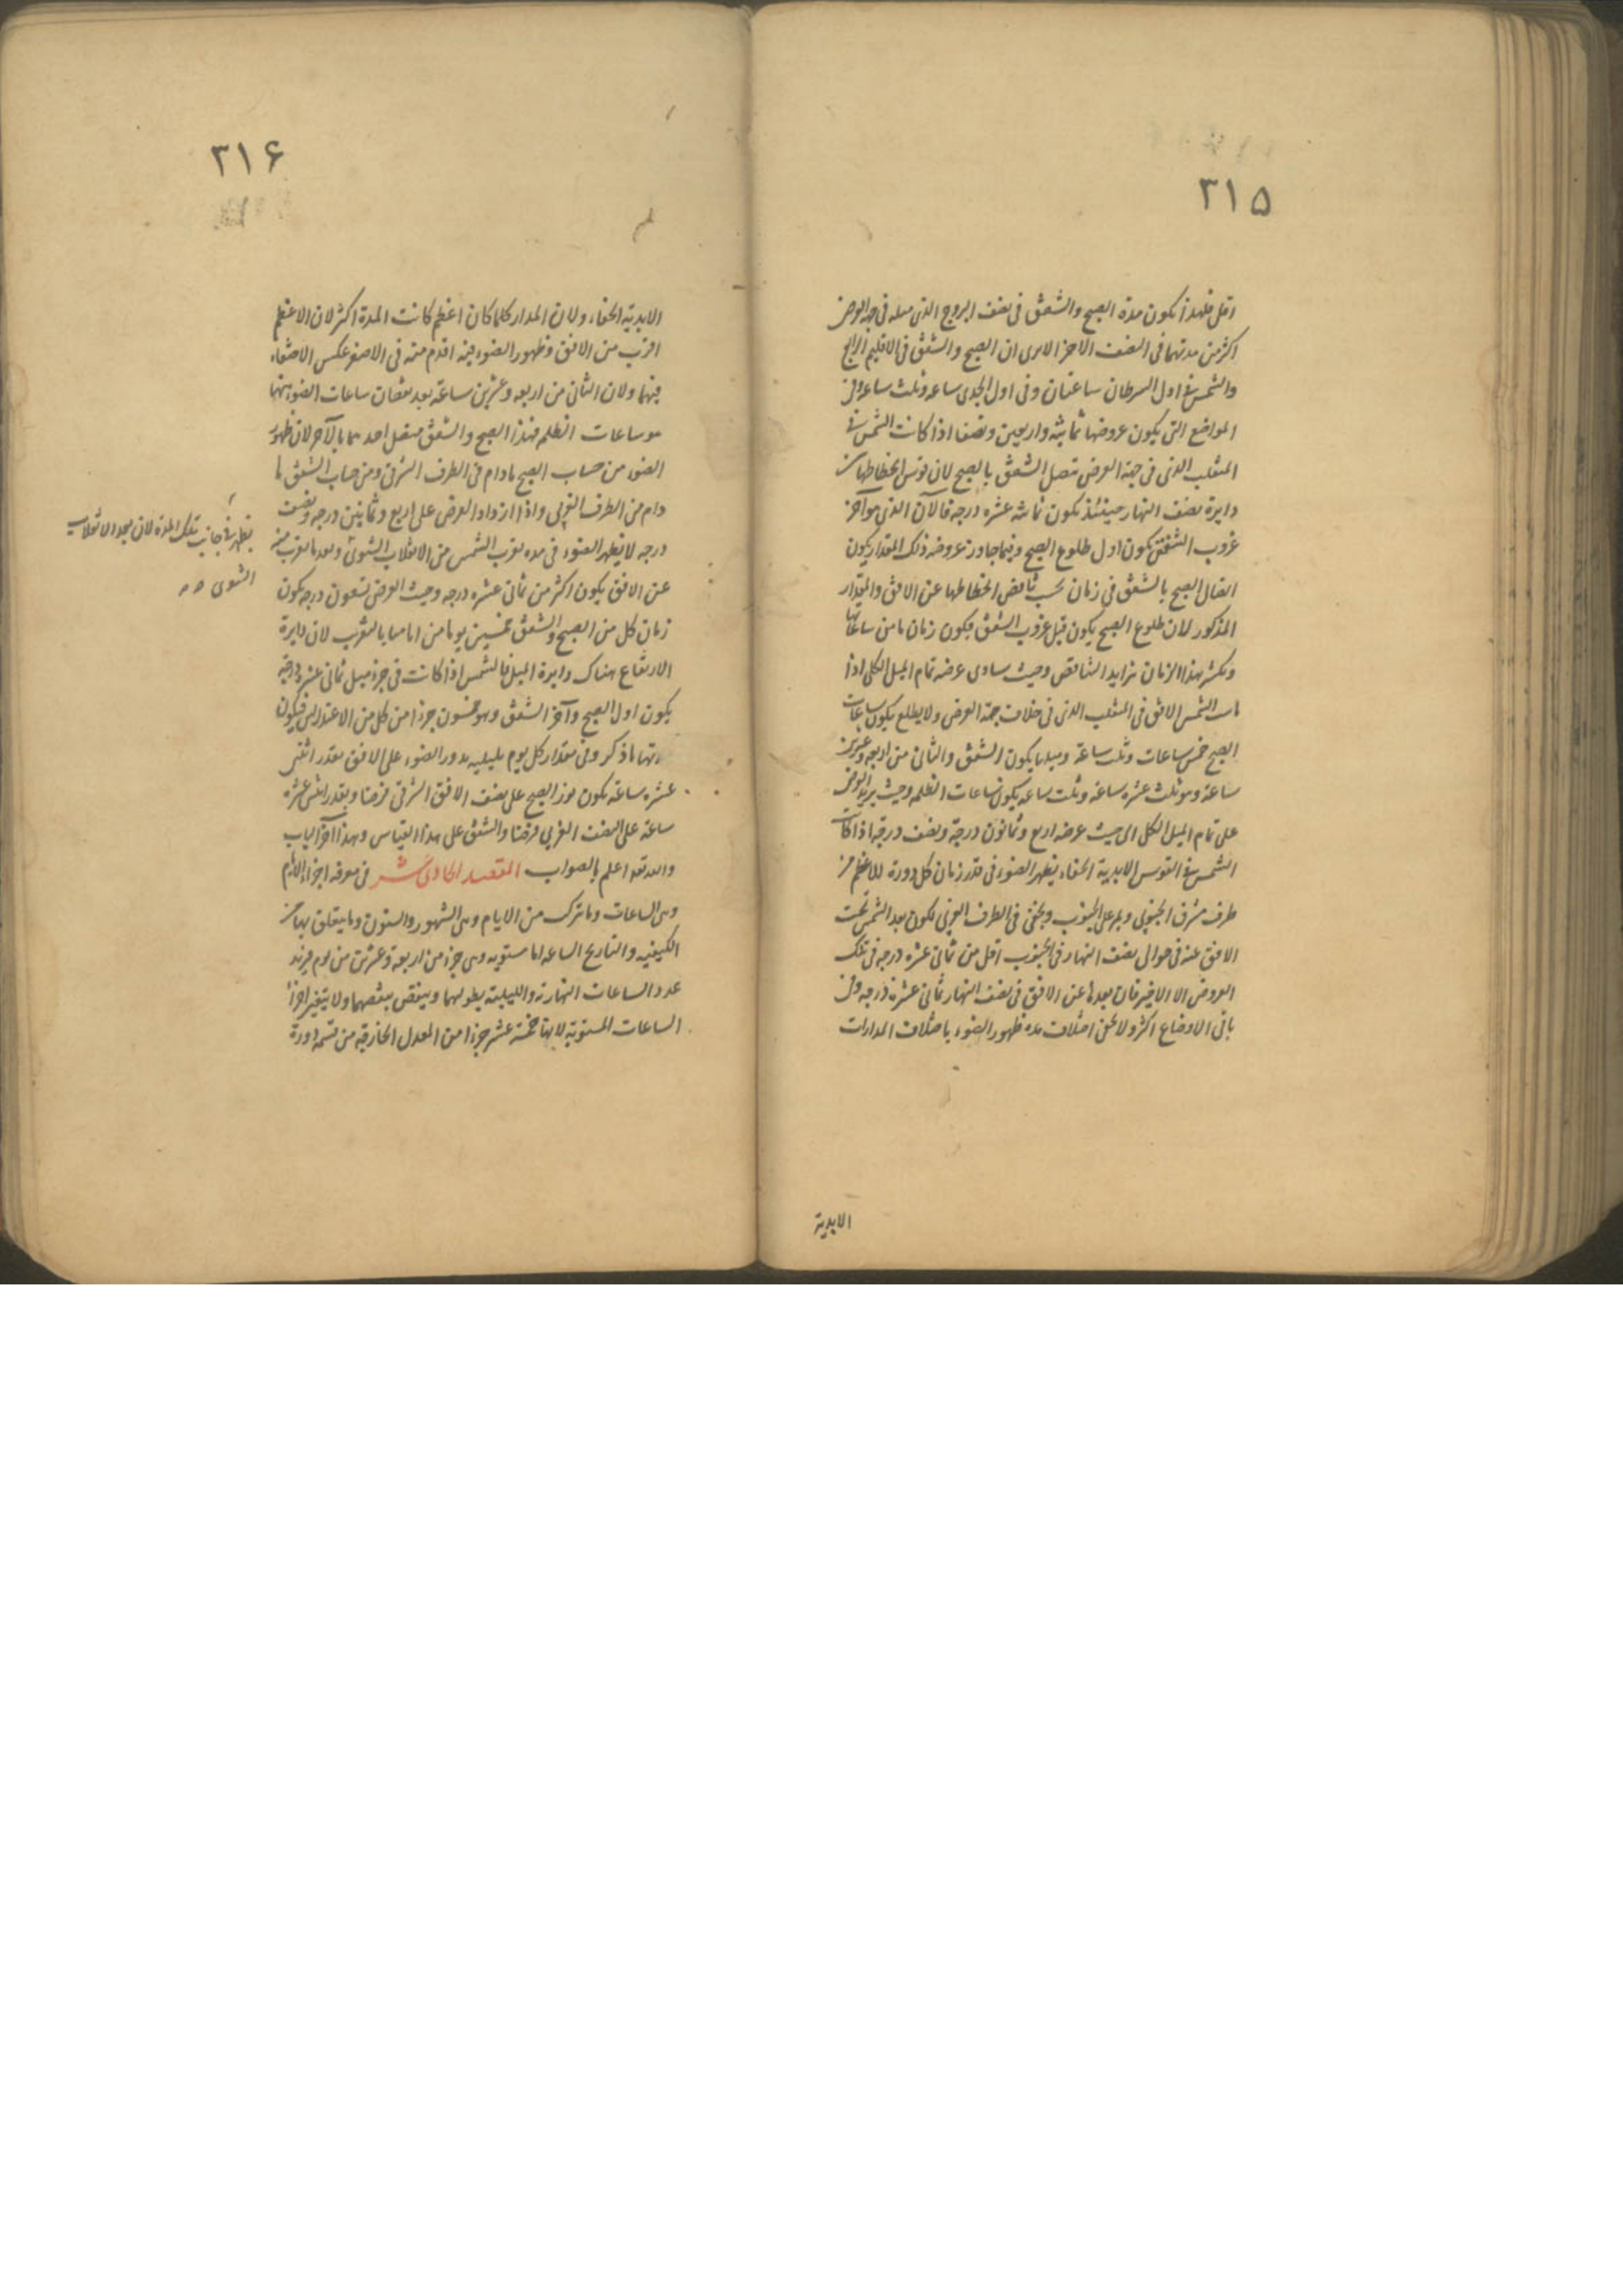 ٣١۵
اقل فلهذا تكون مدة الصبح والشفق فى نصف البروج الذى ميله فى جهة العرض
اكثر من مدتهما فى النصف الاخر الا يرى ان الصبح والشفق فى الاقليم الرابع
والشمس فى اول السرطان ساعتان وفى اول الجدى ساعه وثلث ساعه وفى
المواضع التى يكون عروضها ثمانيه واربعين ونصفا اذا كانت الشمس فى
المنقلب الذى فى جهة العرض يتصل الشفق بالصبح لان قوس انحطاطها من
دايرة نصف النهار حينئذ يكون ثمانيه عشره درجه فالآن الذى هو آخر
غروب الشفق يكون اول طلوع الصبح وفيما جاوزت عروضه ذلك المقدار يكون
اتصال الصبح بالشفق فى زمان بحسب تناقص انحطاطها عن الافق والمقدار
المذكور لان طلوع الصبح يكون قبل غروب الشفق فيكون زمان ما من ساعاتها
ويكثر هذا الزمان بتزايد التناقص وحيث يساوى عرضه تمام الميل الكلى اذا
ماست الشمس الافق فى المنقلب الذى فى خلاف جهة العرض ولا يطلع يكون ساعات
الصبح خمس ساعات وثلث ساعة ومثلها يكون الشفق والثانى من اربعه وعشرين
ساعة وهو ثلث عشره ساعة وثلث ساعه يكون ساعات الظلمه وحيث يزيد العرض
على تمام الميل الكلى الى حيث عرضه اربع وثمانون درجة ونصف درجة اذا كانت
الشمس فى القوس الابدية الخفاء يظهر الضوء فى قدر زمان كل دورة للاعظم من
طرف مشرق الجنوبى ويمر على الجنوب ويخفى فى الطرف الغربى لكون بعد الشمس تحت
الافق عنه فى حوالى نصف النهار فى الجنوب اقل من ثمانى عشره درجه فى تلك
العروض الا الاخير فان بعدها عن الافق فى نصف النهار ثمانى عشرة درجه وفى
باقى الاوضاع اكثر ولا يخفى اختلاف مده ظهور الضوء باختلاف المدارات
الابدية
٣١۶
الابدية الخفاء ولان المدار كلما كان اعظم كانت المدة اكثر لان الاعظم
اقرب من الافق وظهور الضوء فيه اقدم منه فى الاصغر عكس الاختفاء
فيهما ولان الثانى من اربعه وعشرين ساعة بعد نقصان ساعات الضوء منهما
هو ساعات الظلم فهذا الصبح والشفق متصل احدهما بالآخر لان ظهور
الضوء من حساب الصبح مادام فى الطرف الشرقى ومن حساب الشفق ما
دام من الطرف الغربى واذا ازداد العرض على اربع وثمانين درجه ونصف
درجه لا يظهر الضوء فى مده بقرب الشمس من الانقلاب الشتوى وبعد ما يقرب منه
عن الافق يكون اكثر من ثمانى عشره درجه وحيث العرض تسعون درجه يكون
زمان كل من الصبح والشفق خمسين يوما من ايامنا بالتقريب لان دايرة
الارتفاع هناك دايرة الميل فالشمس اذا كانت فى جزء ميل ثمانى عشر درجة
يكون اول الصبح وآخر الشفق وهو خمسون جزءا من كل من الاعتدالين فيكون
مدتها ما ذكر وفى مقدار كل يوم بليليه يدور الضوء على الافق بقدر اثنى
عشره ساعة يكون نور الصبح على نصف الافق الشرقى فرضا وبقدر اثنى عشره
ساعة على النصف الغربى فرضا والشفق على هذا القياس وهذا آخر الباب
والله تعه اعلم بالصواب المقصد الحادى عشر فى معرفه اجزاء الايام
وهى الساعات وما تركب من الايام وهى الشهور والسنون وما يتعلق بها من
الكيفيه والتاريخ الساعه اما مستويه وهى جزء من اربعة وعشرين من يوم فيزيد
عدد الساعات النهارية والليلية بطولهما وينقص بنقصهما ولا يتغير اجزاء
الساعات المستوية لانها خمسة عشر جزءا من المعدل الخارقيه من قسمة دورة
يظهر فى جانب تلك المدة لان بعد الانقلاب
الشتوى